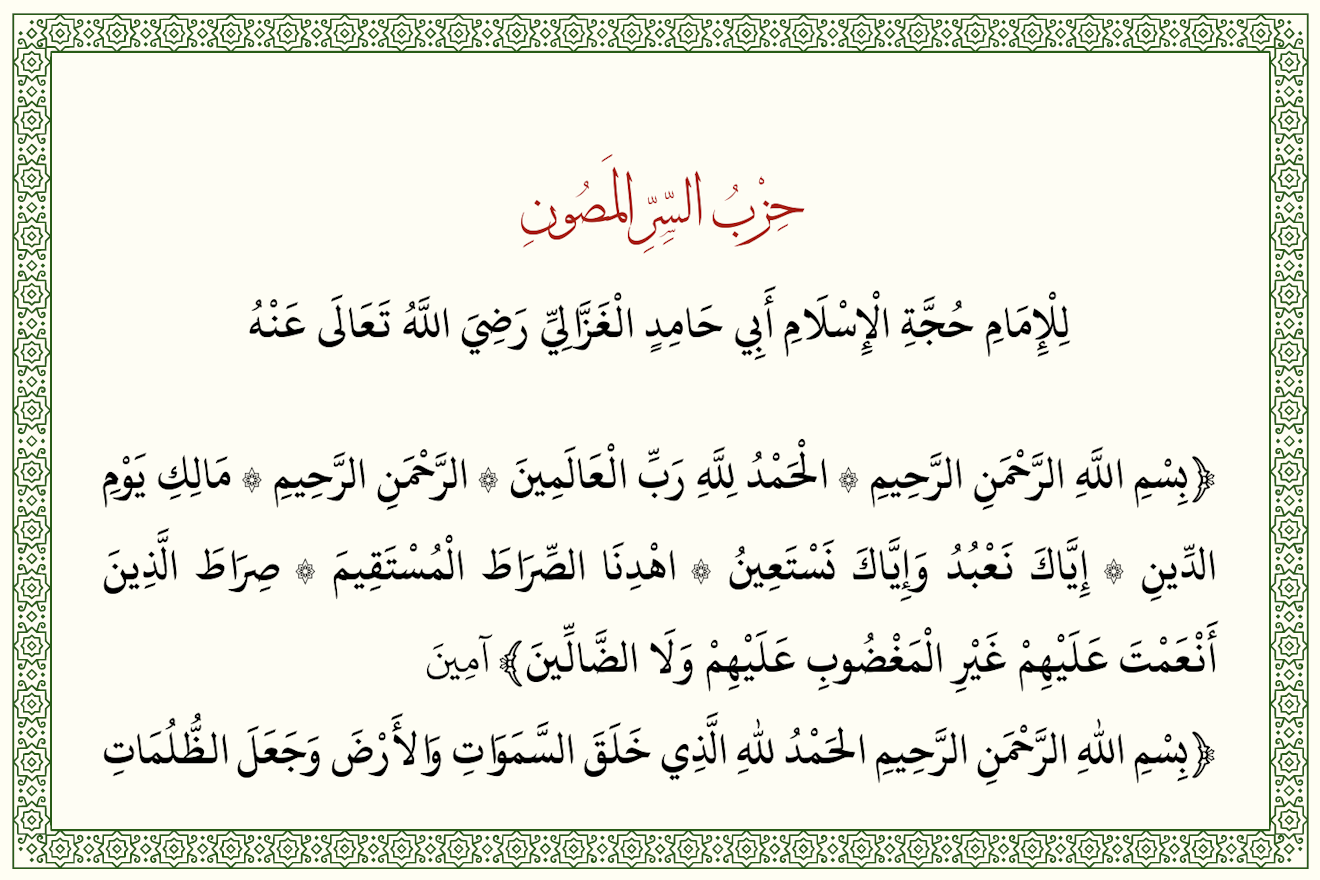 حِزْبُ السِّرِّ المَصُونِ
لِلْإِمَامِ حُجَّةِ الْإِسْلَامِ أَبِي حَامِدٍ الْغَزَّالِيِّ رَضِيَ اللَّهُ تَعَالَى عَنْهُ
﴿بِسْمِ اللَّهِ الرَّحْمَنِ الرَّحِيمِ ۞ الْحَمْدُ لِلَّهِ رَبِّ الْعَالَمِينَ ۞ الرَّحْمَنِ الرَّحِيمِ ۞ مَالِكِ يَوْمِ
الدِّينِ ۞ إِيَّاكَ نَعْبُدُ وَإِيَّاكَ نَسْتَعِينُ ۞ اهْدِنَا الصِّرَاطَ الْمُسْتَقِيمَ ۞ صِرَاطَ الَّذِينَ
أَنْعَمْتَ عَلَيْهِمْ غَيْرِ الْمَغْضُوبِ عَلَيْهِمْ وَلَا الضَّالِّينَ﴾ آمِينَ
﴿بِسْمِ اللهِ الرَّحْمَنِ الرَّحِيمِ الحَمْدُ للهِ الَّذِي خَلَقَ السَّمَوَاتِ وَالأَرْضَ وَجَعَلَ الظُّلُمَاتِ